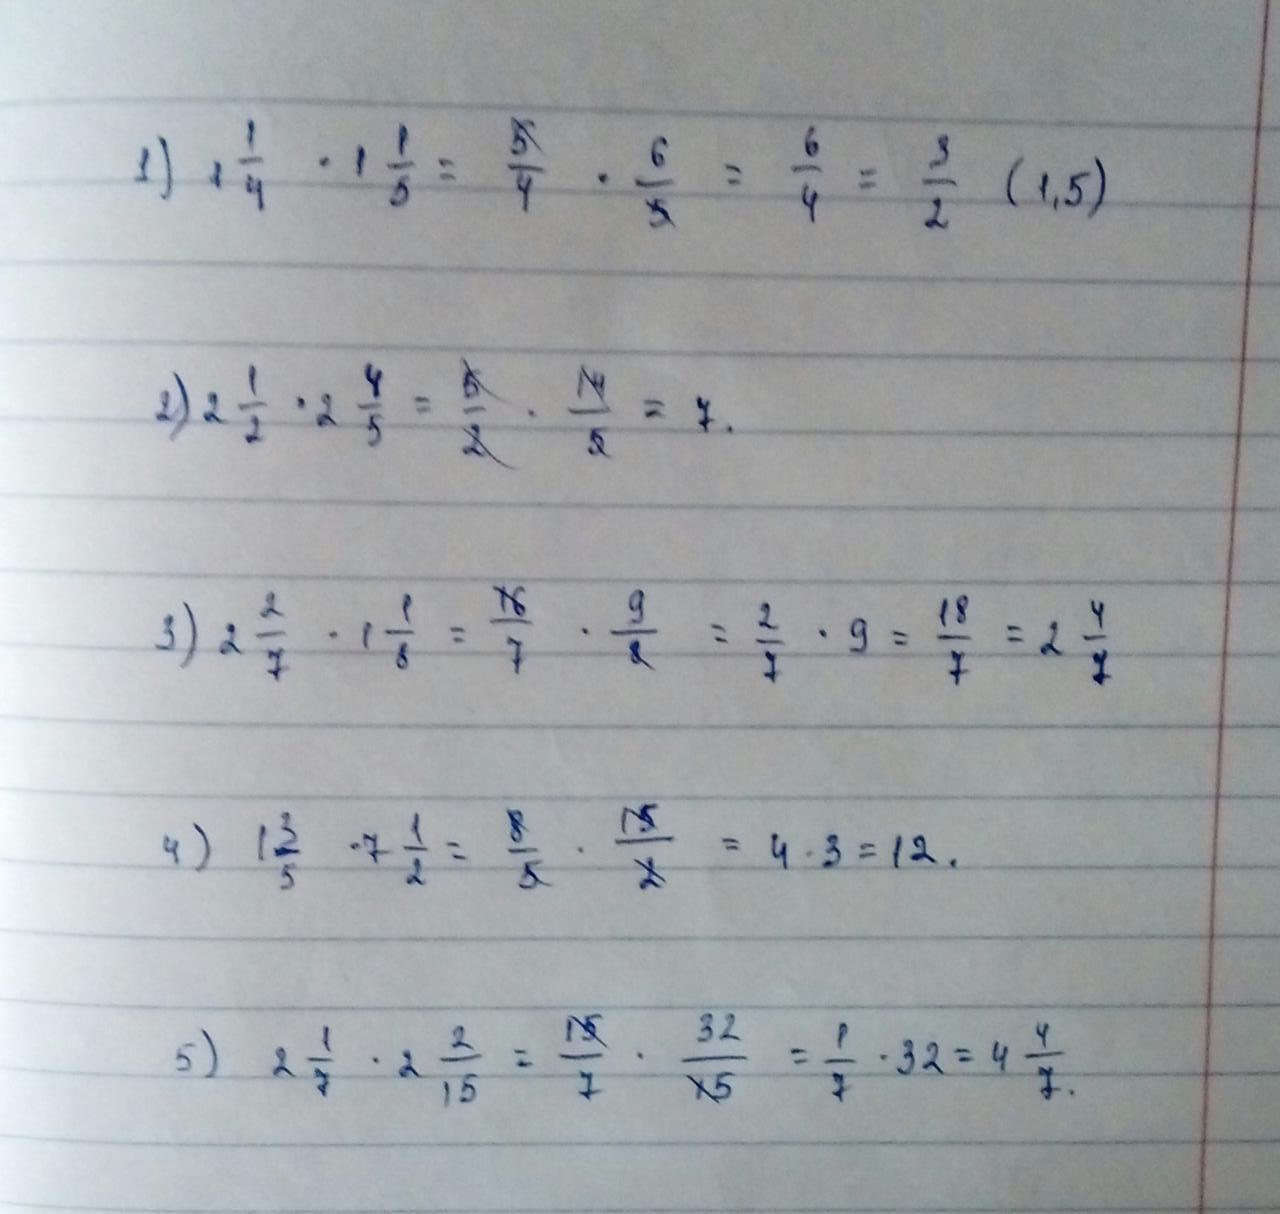 1) 1 1/4 · 1 1/5 = 5/4 · 6/5 = 6/4 = 3/2 (1,5)
2) 2 1/2 · 2 4/5 = 5/2 · 14/5 = 7.
3) 2 2/7 · 1 1/8 = 16/7 · 9/8 = 2/7 · 9 = 18/7 = 2 4/7
4) 1 3/5 · 7 1/2 = 8/5 · 15/2 = 4 · 3 = 12.
5) 2 1/7 · 2 2/15 = 15/7 · 32/15 = 1/7 · 32 = 4 4/7.